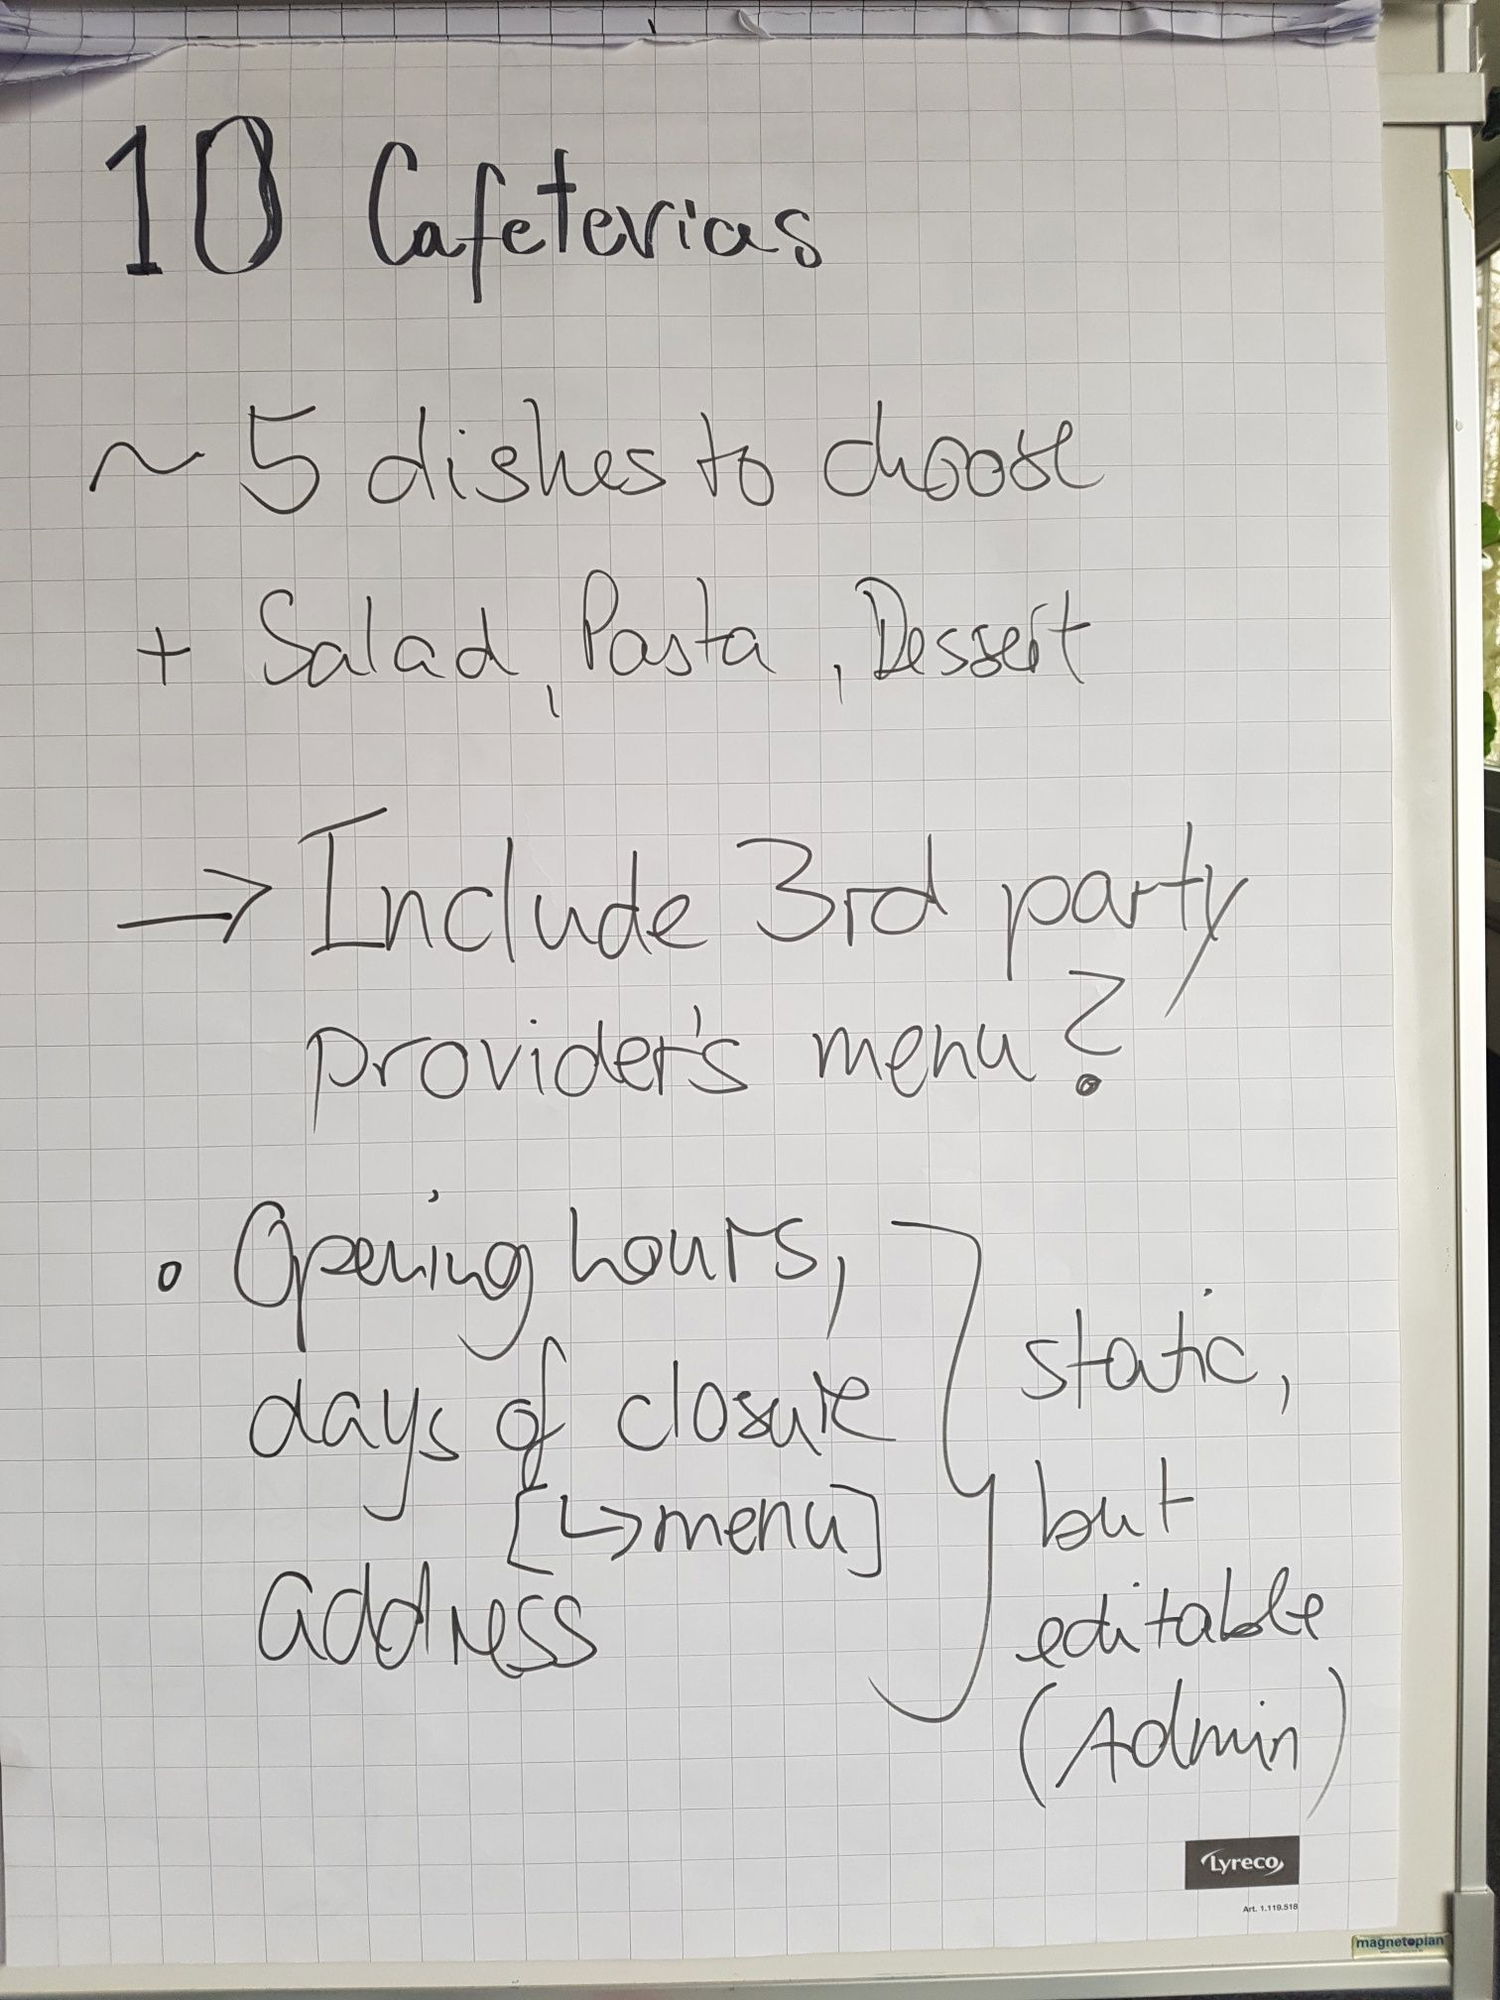 10 Cafeterias
~ 5 dishes to choose
+ Salad, Pasta, Dessert
→ Include 3rd party
provider's menu?
• Opening hours,
days of closure
[↳ menu]
address
static,
but
editable
(Admin)
Lyreco
Art. 1.119.518
magnetoplan